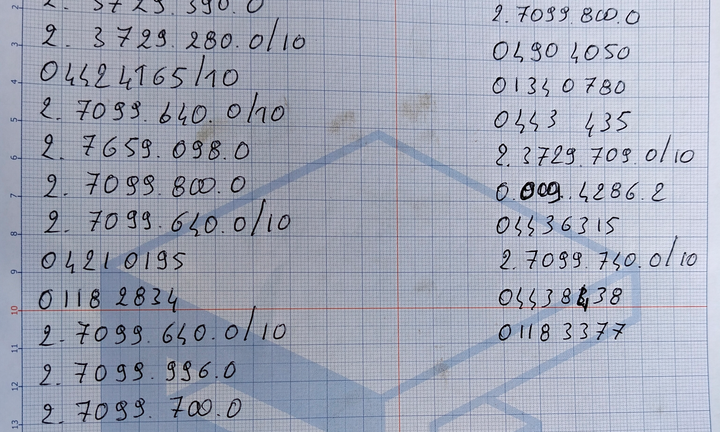 2. 3729.390.0
2. 3729.280.0/10
04424165/10
2. 7099.640.0/10
2. 7659.098.0
2. 7099.800.0
2. 7099.640.0/10
04210195
0118 2834
2. 7099.640.0/10
2. 7099.996.0
2. 7099.700.0
2.7099.800.0
0490 4050
01340780
0443 435
2.3729.709.0/10
0.009.4286.2
04436315
2.7099.740.0/10
04438438
01183377
2
3
4
5
6
7
8
9
10
11
12
13